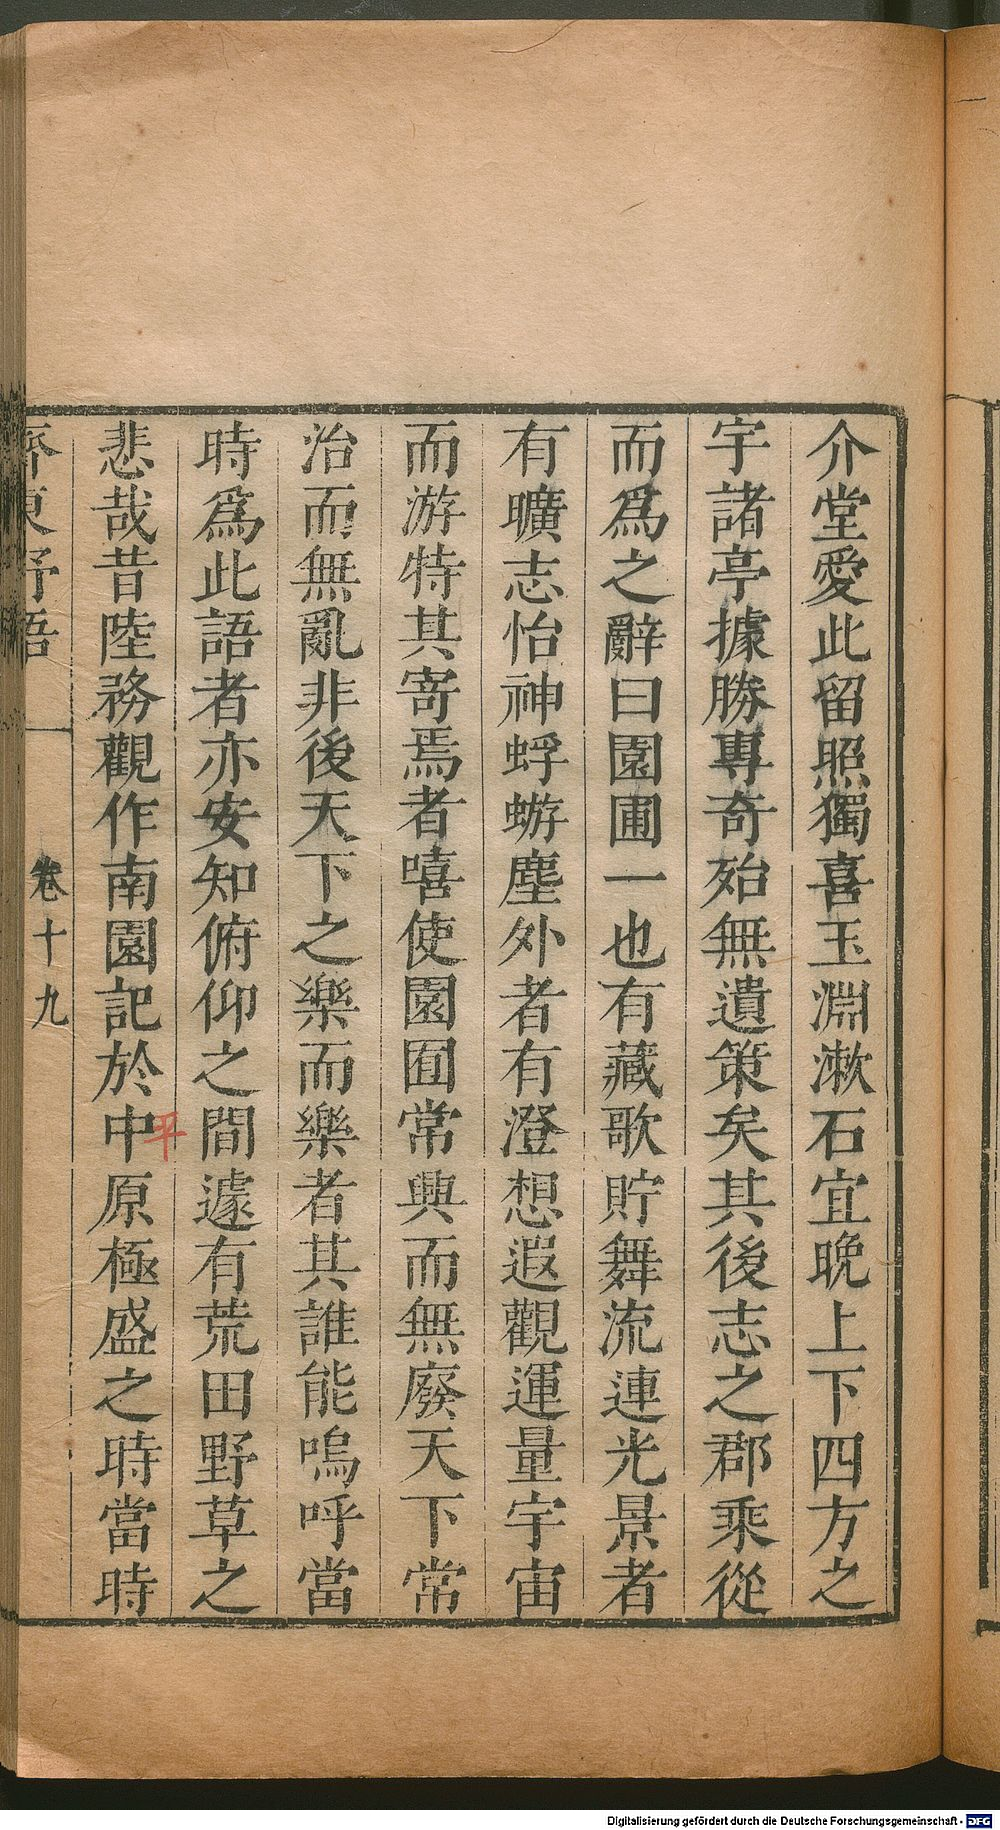 介堂愛此留照獨喜玉淵漱石宜晚上下四方之
宇諸亭據勝專奇殆無遺策矣其後志之郡乘從
而爲之辭曰園圃一也有藏歌貯舞流連光景者
有曠志怡神蜉蝣塵外者有澄想遐觀運量宇宙
而游特其寄焉者嘻使園囿常興而無廢天下常
治而無亂非後天下之樂而樂者其誰能嗚呼當
時爲此語者亦安知俯仰之間遽有荒田野草之
悲哉昔陸務觀作南園記於中原極盛之時當時
平
齊東野語 卷十九
Digitalisierung gefördert durch die Deutsche Forschungsgemeinschaft - DFG